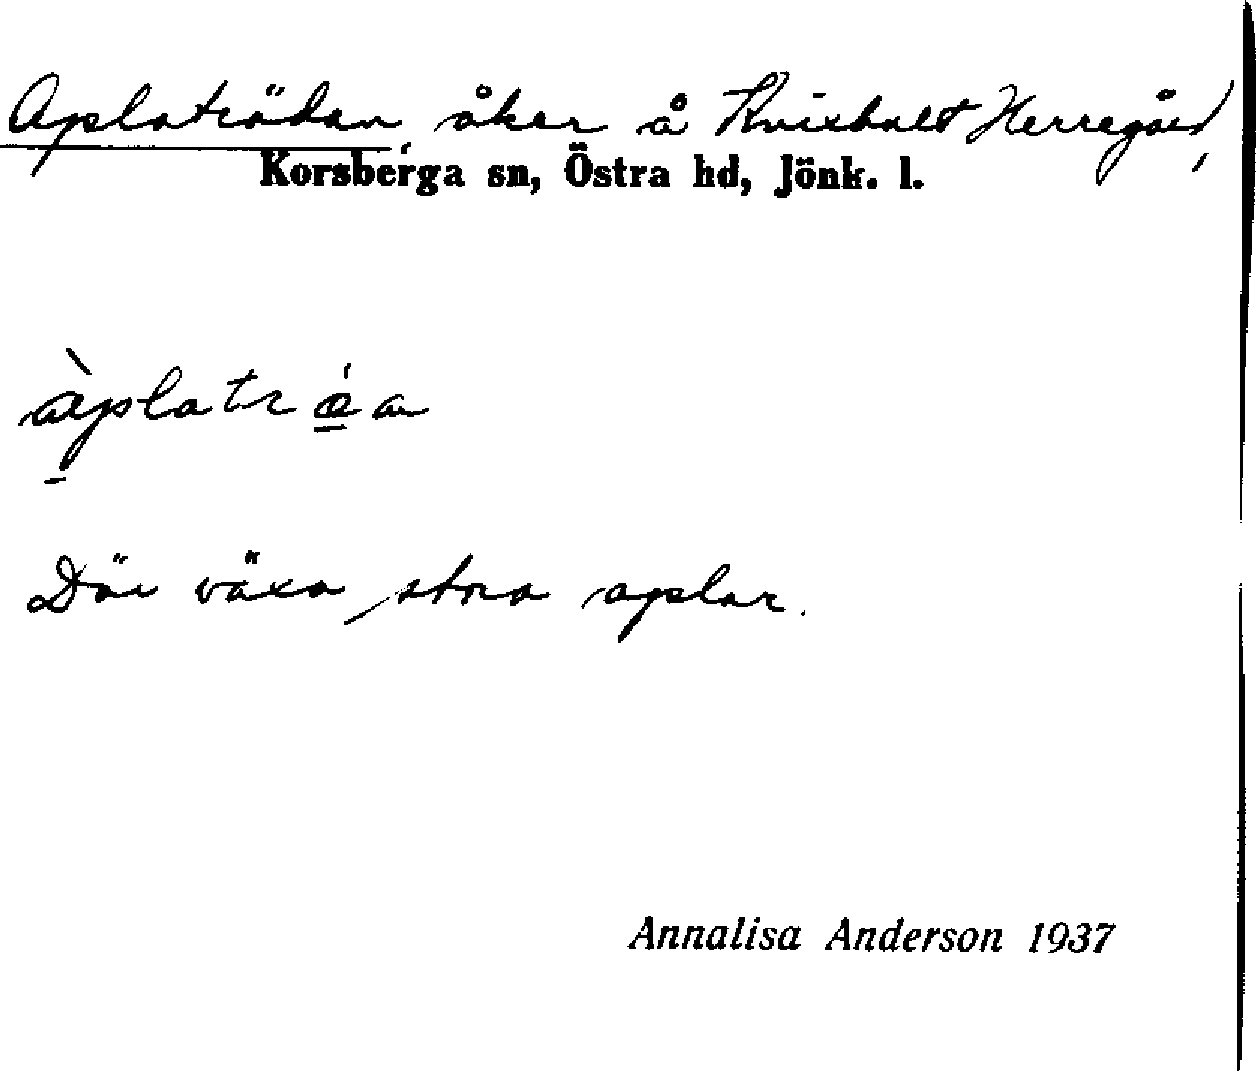 Aplaträdan, åker å Kvixhult Herregård,
Korsberga sn, Östra hd, Jönk. l.
àplatrǽan
Där växa stora aplar.
Annalisa Anderson 1937